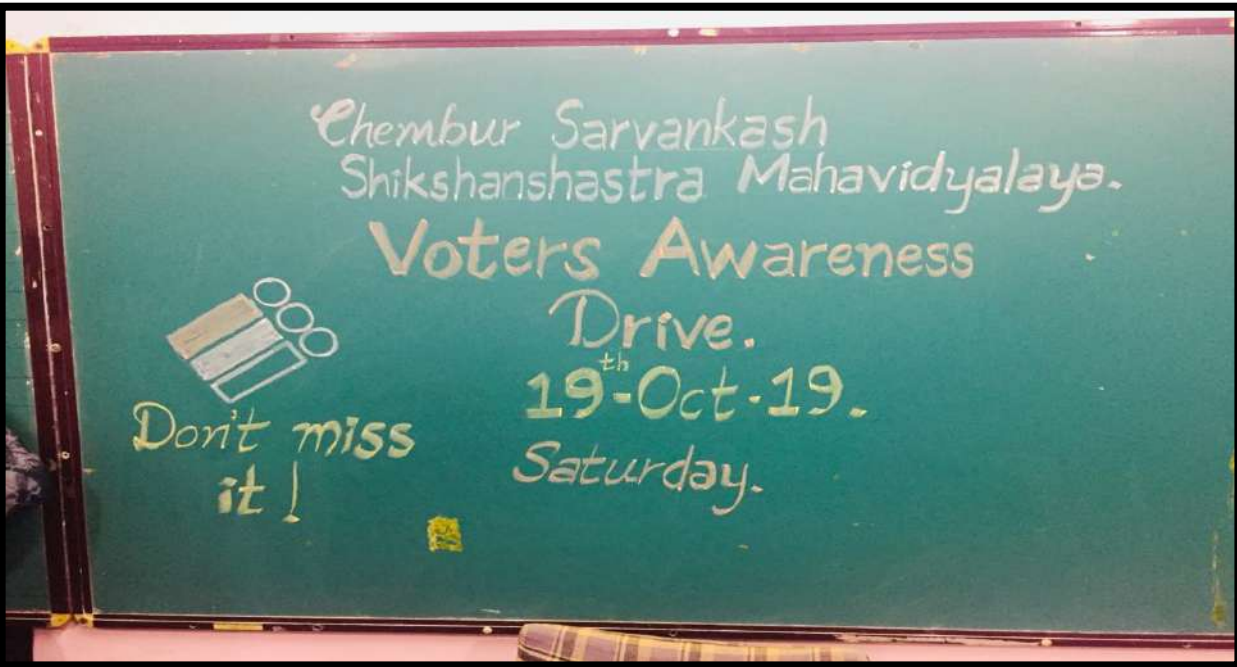 Chembur Sarvankash
Shikshanshastra Mahavidyalaya.
Voters Awareness
Drive.
19th-Oct-19.
Saturday.
Don't miss
it!